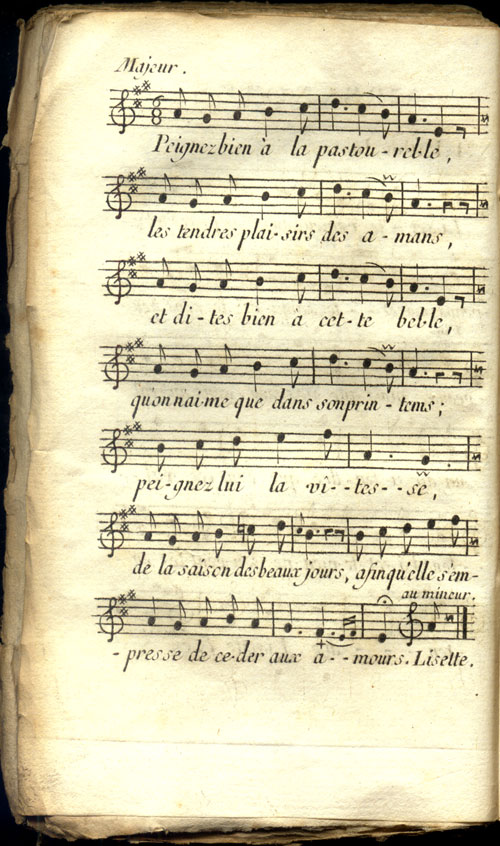 Majeur.
Peignez bien à la pastou-rel-le,
les tendres plai-sirs des a-mans,
et di-tes bien à cet-te bel-le,
qu'on n'ai-me que dans son prin-tems;
pei-gnez lui la vî--tes--se,
de la saison des beaux jours, afin qu'elle s'em-
au mineur.
-presse de ce-der aux a--mours. Lisette.